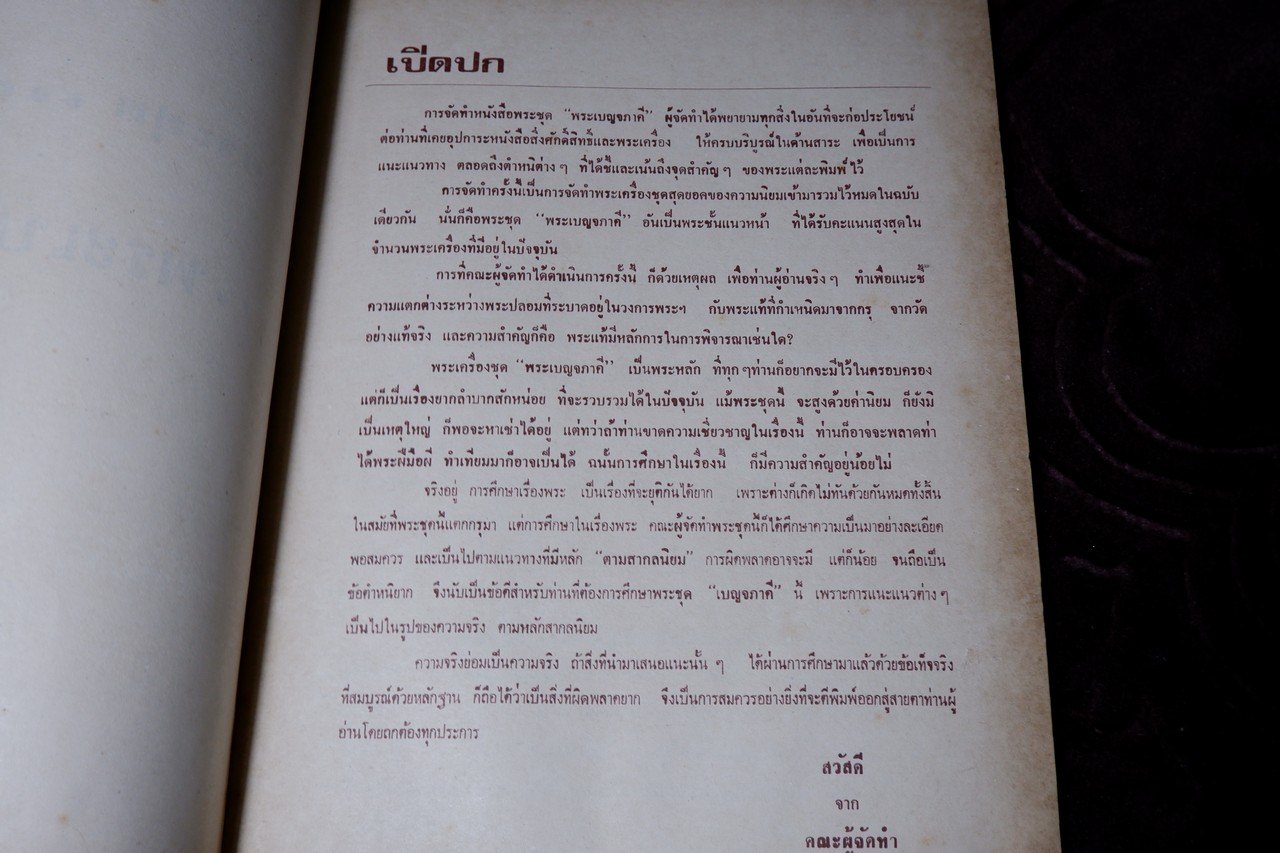 เปิดปก
การจัดทำหนังสือพระชุด "พระเบญจภาคี" ผู้จัดทำได้พยายามทุกสิ่งในอันที่จะก่อประโยชน์
ต่อท่านที่เคยอุปการะหนังสือสิ่งศักดิ์สิทธิ์และพระเครื่อง ให้ครบบริบูรณ์ในด้านสาระ เพื่อเป็นการ
แนะแนวทาง ตลอดถึงตำหนิต่าง ๆ ที่ได้ชี้และเน้นถึงจุดสำคัญ ๆ ของพระแต่ละพิมพ์ไว้
การจัดทำครั้งนี้เป็นการจัดทำพระเครื่องชุดสุดยอดของความนิยมเข้ามารวมไว้หมดในฉบับ
เดียวกัน นั่นก็คือพระชุด "พระเบญจภาคี" อันเป็นพระชั้นแนวหน้า ที่ได้รับคะแนนสูงสุดใน
จำนวนพระเครื่องที่มีอยู่ในปัจจุบัน
การที่คณะผู้จัดทำได้ดำเนินการครั้งนี้ ก็ด้วยเหตุผล เพื่อท่านผู้อ่านจริง ๆ ทำเพื่อแนะชี้
ความแตกต่างระหว่างพระปลอมที่ระบาดอยู่ในวงการพระฯ กับพระแท้ที่กำเหนิดมาจากกรุ จากวัด
อย่างแท้จริง และความสำคัญก็คือ พระแท้มีหลักการในการพิจารณาเช่นใด?
พระเครื่องชุด "พระเบญจภาคี" เป็นพระหลัก ที่ทุก ๆท่านก็อยากจะมีไว้ในครอบครอง
แต่ก็เป็นเรื่องยากลำบากสักหน่อย ที่จะรวบรวมได้ในปัจจุบัน แม้พระชุดนี้ จะสูงด้วยค่านิยม ก็ยังมิ
เป็นเหตุใหญ่ ก็พอจะหาเช่าได้อยู่ แต่ทว่าถ้าท่านขาดความเชี่ยวชาญในเรื่องนี้ ท่านก็อาจจะพลาดท่า
ได้พระฝีมือผี ทำเทียมมาก็อาจเป็นได้ ฉนั้นการศึกษาในเรื่องนี้ ก็มีความสำคัญอยู่น้อยไม่
จริงอยู่ การศึกษาเรื่องพระ เป็นเรื่องที่จะยุติกันได้ยาก เพราะต่างก็เกิดไม่ทันด้วยกันหมดทั้งสิ้น
ในสมัยที่พระชุดนี้แตกกรุมา แต่การศึกษาในเรื่องพระ คณะผู้จัดทำพระชุดนี้ก็ได้ศึกษาความเป็นมาอย่างละเอียด
พอสมควร และเป็นไปตามแนวทางที่มีหลัก "ตามสากลนิยม" การผิดพลาดอาจจะมี แต่ก็น้อย จนถือเป็น
ข้อตำหนิยาก จึงนับเป็นข้อดีสำหรับท่านที่ต้องการศึกษาพระชุด "เบญจภาคี" นี้ เพราะการแนะแนวต่าง ๆ
เป็นไปในรูปของความจริง ตามหลักสากลนิยม
ความจริงย่อมเป็นความจริง ถ้าสิ่งที่นำมาเสนอแนะนั้น ๆ ได้ผ่านการศึกษามาแล้วด้วยข้อเท็จจริง
ที่สมบูรณ์ด้วยหลักฐาน ก็ถือได้ว่าเป็นสิ่งที่ผิดพลาดยาก จึงเป็นการสมควรอย่างยิ่งที่จะตีพิมพ์ออกสู่สายตาท่านผู้
อ่านโดยถูกต้องทุกประการ
สวัสดี
จาก
คณะผู้จัดทำ